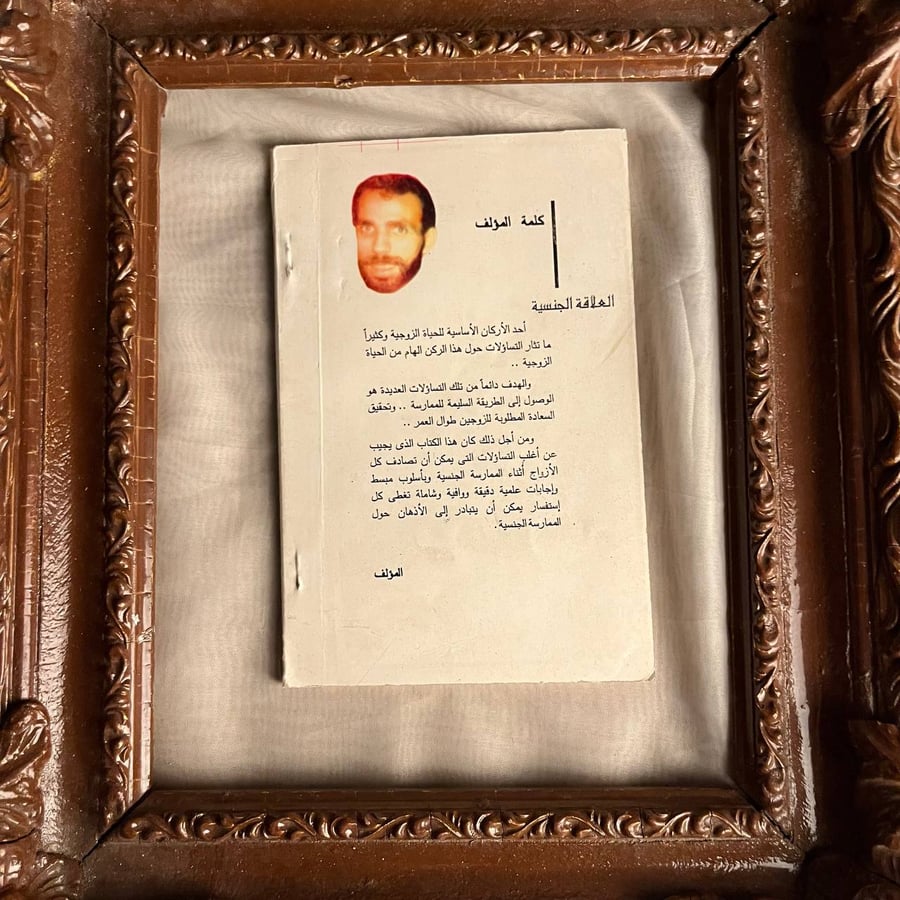 كلمة المؤلف
العلاقة الجنسية
أحد الأركان الأساسية للحياة الزوجية وكثيراً
ما تثار التساؤلات حول هذا الركن الهام من الحياة
الزوجية ..
والهدف دائماً من تلك التساؤلات العديدة هو
الوصول إلى الطريقة السليمة للممارسة .. وتحقيق
السعادة المطلوبة للزوجين طوال العمر ..
ومن أجل ذلك كان هذا الكتاب الذى يجيب
عن أغلب التساؤلات التى يمكن أن تصادف كل
الأزواج أثناء الممارسة الجنسية وبأسلوب مبسط
وإجابات علمية دقيقة ووافية وشاملة تغطى كل
إستفسار يمكن أن يتبادر إلى الأذهان حول
الممارسة الجنسية .
المؤلف